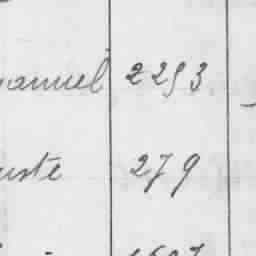 anuel 2293
uste 279